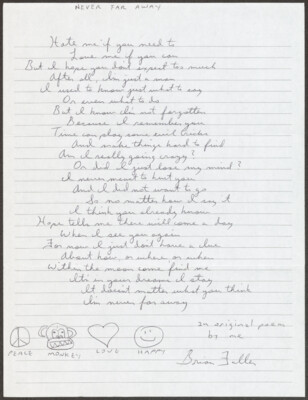 NEVER FAR AWAY
Hate me if you need to
Love me if you can
But I hope you don't expect too much
After all, I'm just a man
I used to know just what to say
Or even what to do
But I know I'm not forgotten
Because I remember you
Time can play some evil tricks
And make things hard to find
Am I really going crazy?
Or did I just lose my mind?
I never meant to hurt you
And I did not want to go
So no matter how I say it
I think you already know
Hope tells me there will come a day
When I see you again
For now I just don't have a clue
About how, or where, or when
Within the moon come find me
It's in your dreams I stay
It doesn't matter what you think
I'm never far away
PEACE MONKEY LOVE HAPPY
An original poem
by me
Brian